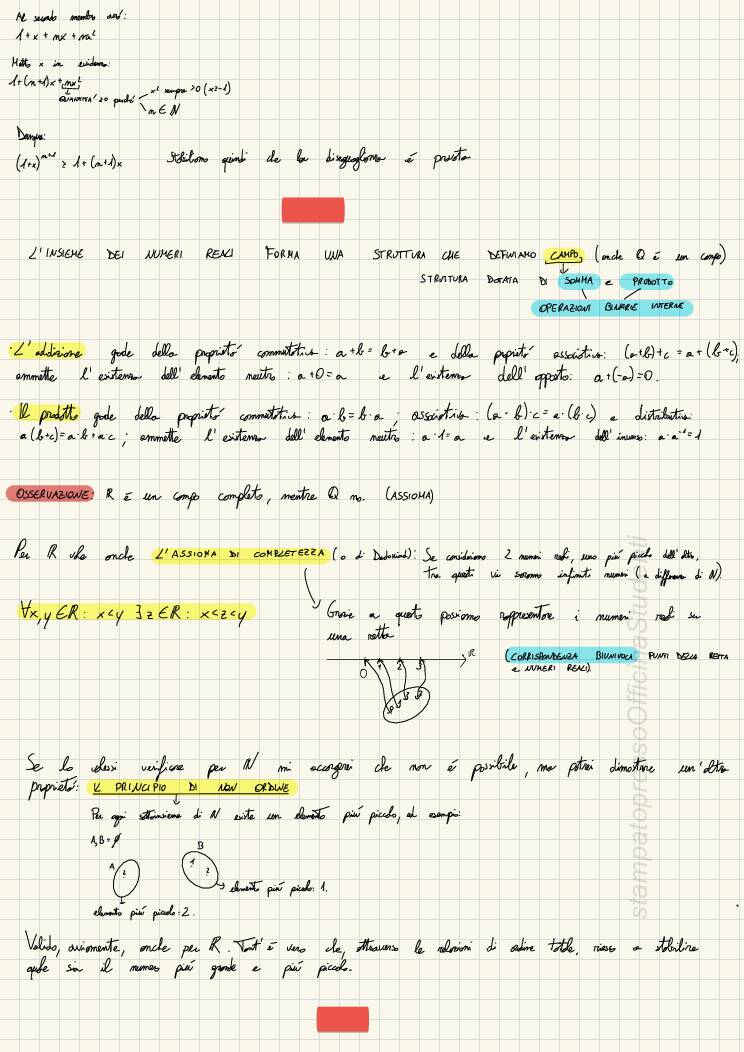 Al secondo membro avrò:
1+x+mx+mx²
Metto x in evidenza:
1+(m+1)x+mx²
QUANTITÀ ≥0 perché x² sempre >0 (x≥-1)
m ∈ N
Dunque:
(1+x)ᵐ⁺¹ ≥ 1+(m+1)x Stabiliamo quindi che la diseguaglianza é provata
L'INSIEME DEI NUMERI REALI FORMA UNA STRUTTURA CHE DEFINIAMO CAMPO, (anche Q é un campo)
STRUTTURA DOTATA DI SOMMA e PRODOTTO
OPERAZIONI BINARIE INTERNE
· L'addizione gode della proprietá commutativa: a+b=b+a e della propietá associativa: (a+b)+c=a+(b+c);
ammette l'esistenza dell'elemento neutro: a+0=a e l'esistenza dell'opposto: a+(-a)=0.
· Il prodotto gode della proprietá commutativa: a·b=b·a; associativa: (a·b)·c=a·(b·c) e distributiva:
a(b+c)=a·b+a·c; ammette l'esistenza dell'elemento neutro: a·1=a e l'esistenza dell'inverso: a·a⁻¹=1
OSSERVAZIONE: R é un campo completo, mentre Q no. (ASSIOMA)
Per R vale anche L'ASSIOMA DI COMPLETEZZA (o di Dedekind): Se consideriamo 2 numeri reali, uno piú piccolo dell'altro,
Tra questi vi saranno infiniti numeri (a differenza di N).
∀x,y∈R: x<y ∃z∈R: x<z<y
Grazie a questo possiamo rappresentare i numeri reali su
una retta
R
0 1 2 3
(CORRISPONDENZA BIUNIVOCA PUNTI DELLA RETTA
e NUMERI REALI).
Se lo volessi verificare per N mi accorgerei che non é possibile, ma potrei dimostrare un'altra
proprietá: IL PRINCIPIO DI NON ORDINE
Per ogni sottoinsieme di N esiste un elemento piú piccolo, ad esempio:
A,B=∅
A 2
B 1 2
elemento piú piccolo: 1.
elemento piú piccolo: 2.
Valido, ovviamente, anche per R. Tant'é vero che, attraverso le relazioni di ordine totale, riesco a stabilire
quale sia il numero piú grande e piú piccolo.
stampatopressoOfficinaStudenti